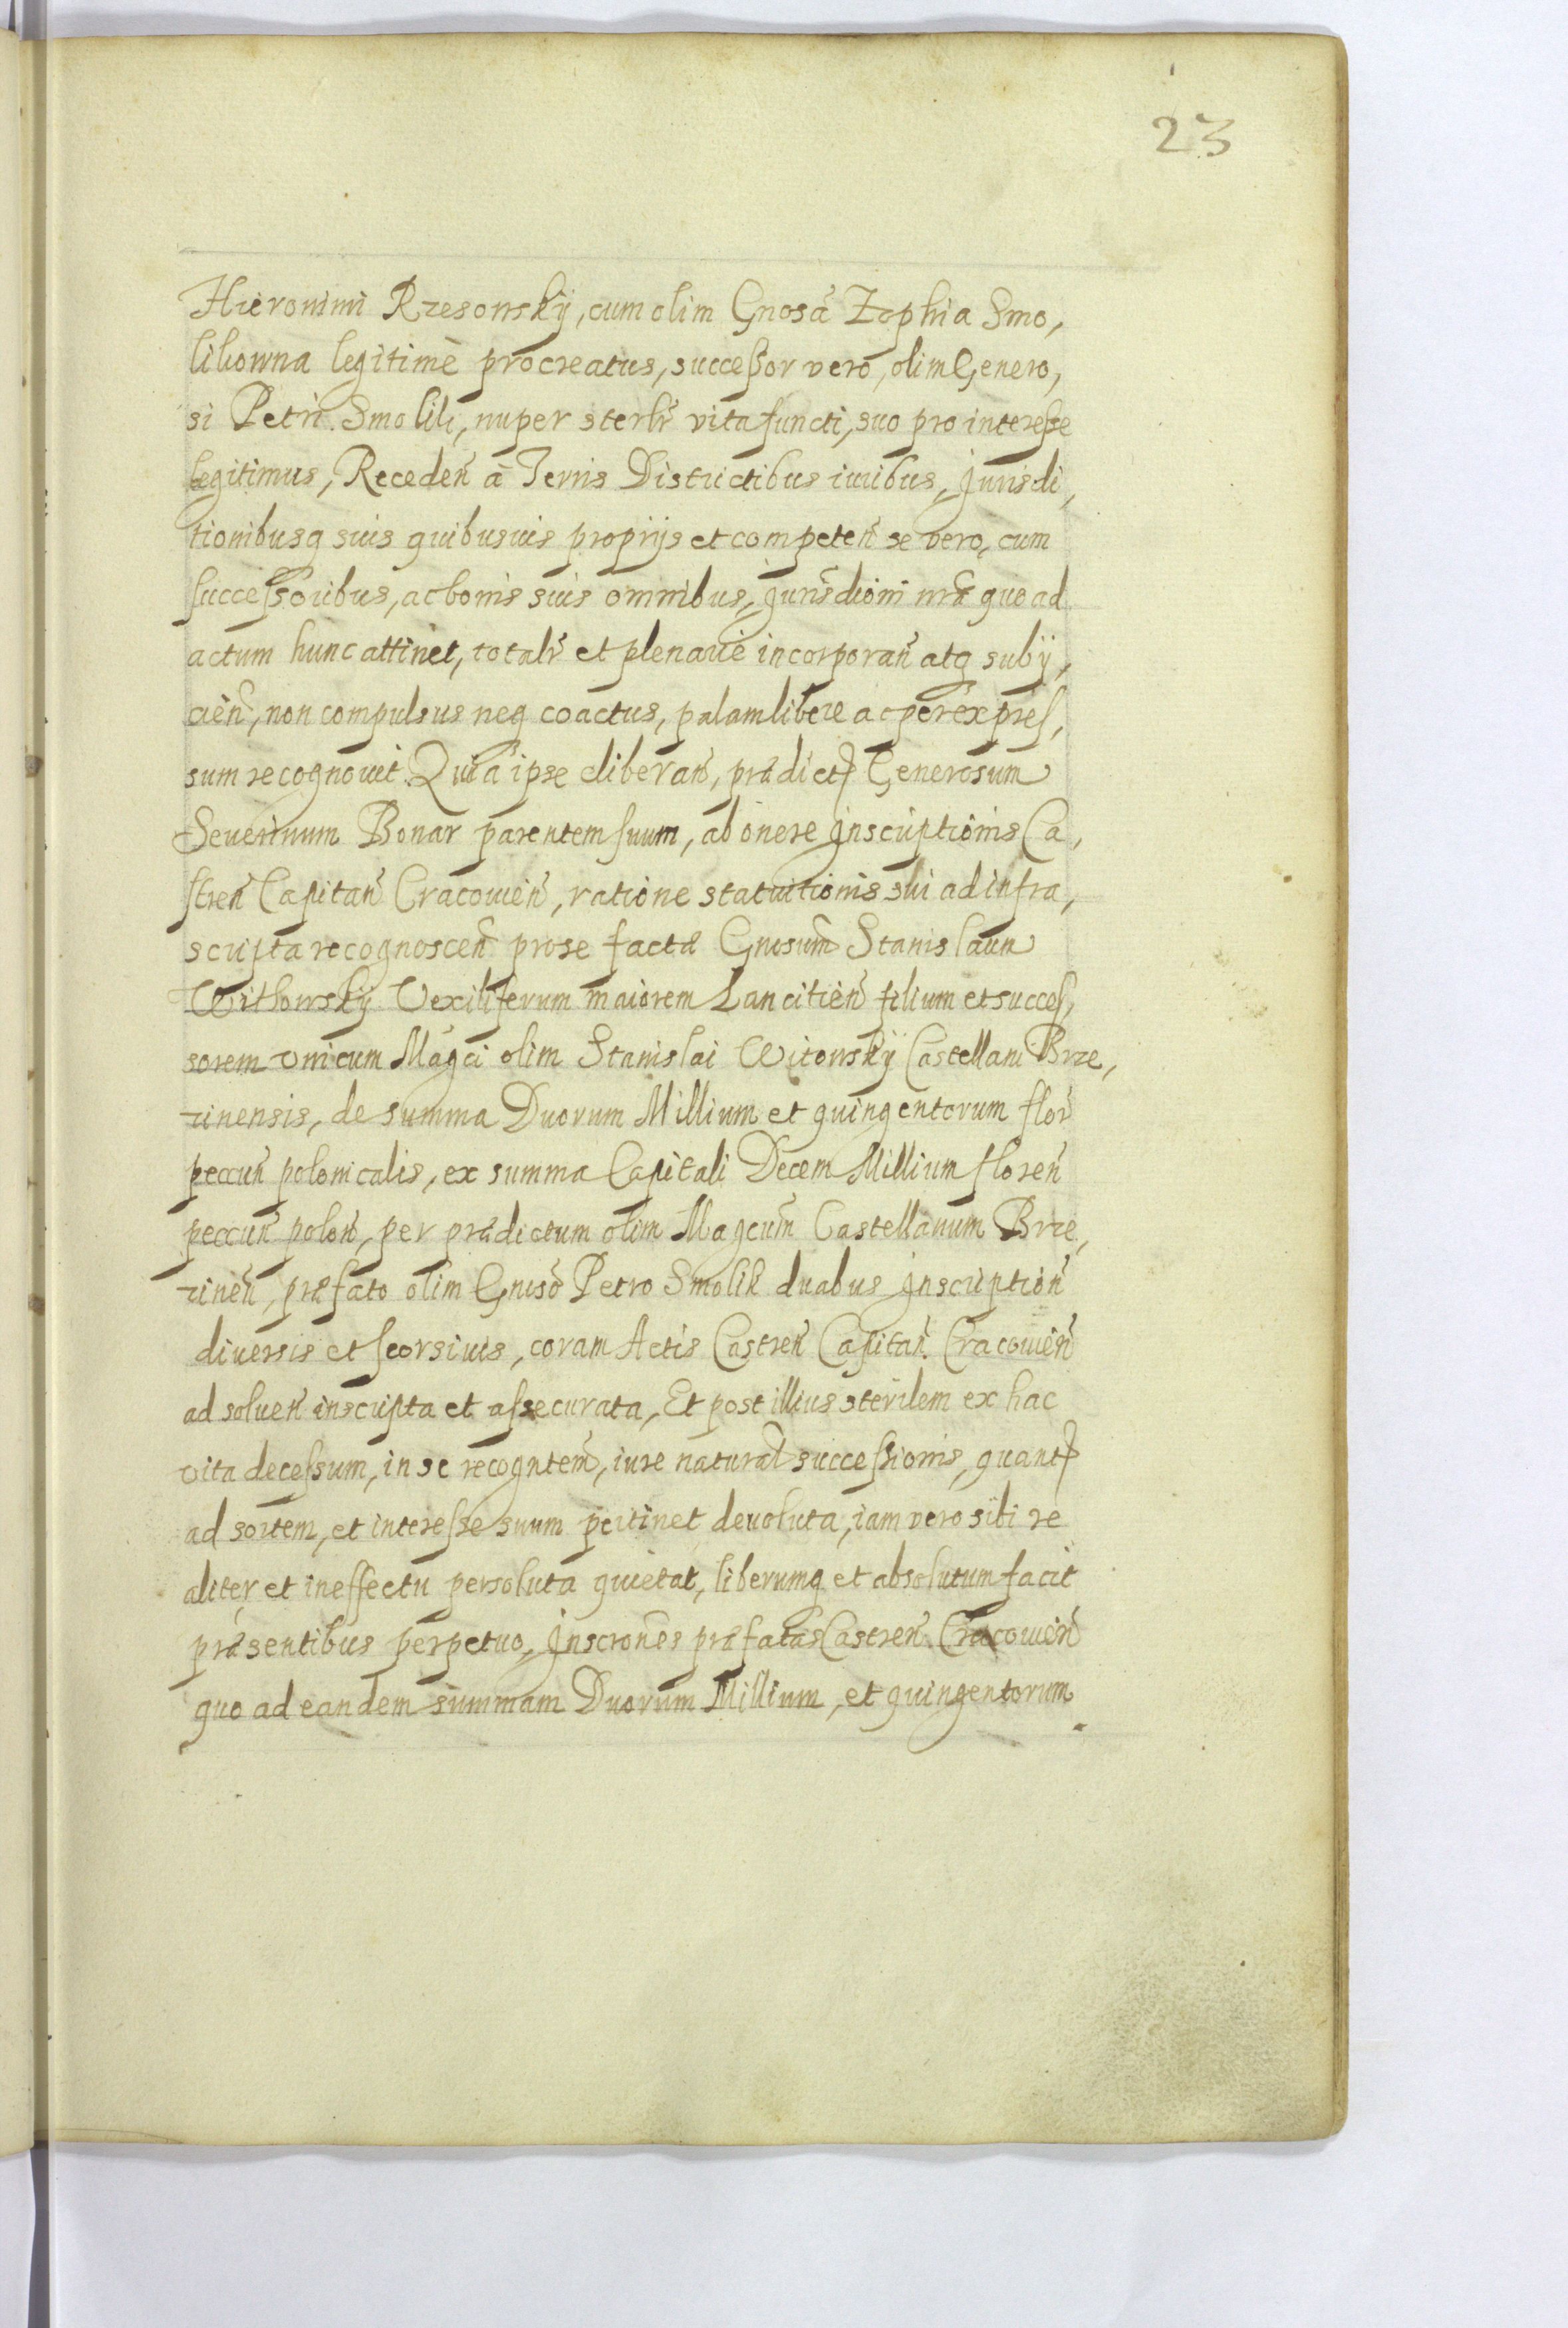 23
Hieronimi Rzesowskÿ, cum olim Gnosã Zophia Smo,
likowna legitimè procreatus, successor vero, olim Genero,
si Petri Smolik, nuper sterlr̃ vita functi, suo pro interesse
legitimus, Recedeñ à Terris Districtibus iuribus, Jurisdi,
tionibusq suis quibusuis proprijs et competeñ se vero, cum
successoribus, ac bonis suis omnibus, Jurisdioni nr̃a quo ad
actum hunc attinet, totalr̃ et plenarie incorporañ atq subÿ,
cieñ, non compulsus neq coactus, palam libere ac per expres,
sum recognouit. Quia ipse cliberañ, prædict Generosum
Seuerinum Bonar parentem suum, ab onere Inscriptionis Ca,
streñ Capitañ Cracouieñ, ratione statuitionis sui ad infra,
scripta recognosceñ pro se factæ Gnosum̃ Stanislaum
Withowskÿ Vexiliferum maiorem Lancitieñ filium et succes,
sorem vnicum Magci olim Stanislai Witowskÿ Castellani Brze,
zinensis, de summa Duorum Millium et quingentorum flor̃
pecuñ polonicalis, ex summa Capitali Decem Millium floreñ
pecuñ poloñ, per prædictum olim Magcum̃ Castellanum Brze,
zineñ, præfato olim Gnosõ Petro Smolik duabus Inscriptioñ
diuersis et seorsiuis, coram Actis Castreñ Capitañ Cracouieñ
ad solueñ inscripta et assecurata, Et post illius sterilem ex hac
vita decessum, in se recogntem̃, iure natural successionis, quant
ad sortem, et interesse suum pertinet deuoluta, iam vero sibi re
aliter et in effectu persoluta quietat, liberumq et absolutum facit
præsentibus perpetuo, Inscrones præfatas Castreñ Cracouieñ
quo ad eandem summam Duorum Millium, et quingentorum